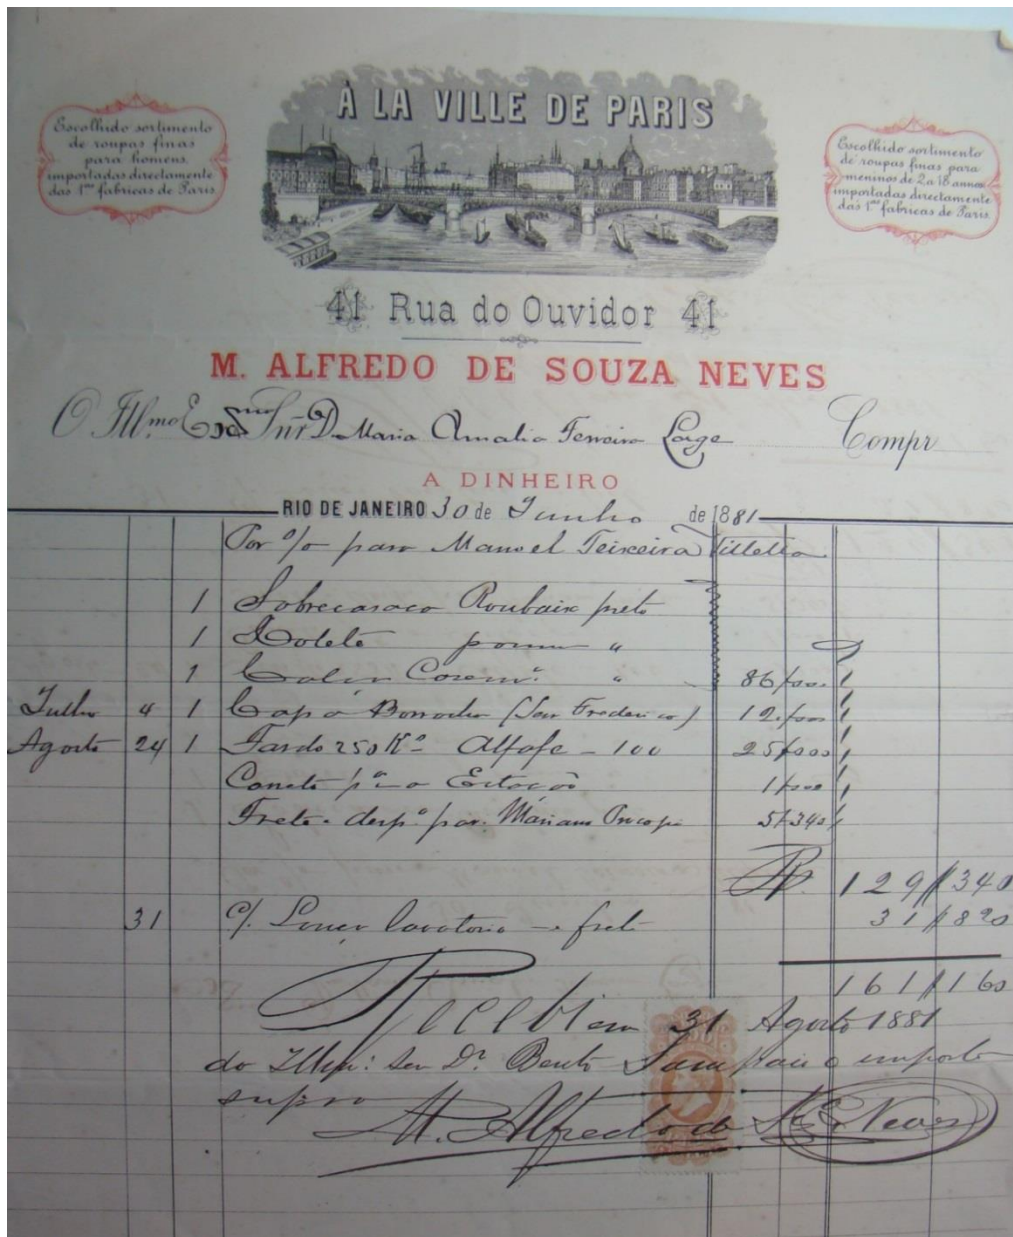 À LA VILLE DE PARIS
Escolhido sortimento
de roupas finas
para homens,
importadas directamente
das 1ªˢ fabricas de Paris.
Escolhido sortimento
de roupas finas para
meninos de 2 a 18 annos
importadas directamente
das 1ªˢ fabricas de Paris.
41 Rua do Ouvidor 41
M. ALFREDO DE SOUZA NEVES
O Ill.mo Ex.mo Snr D. Maria Amalia Ferreira Lage Compr
A DINHEIRO
RIO DE JANEIRO 30 de Junho de 1881
Por o/o para Manoel Teixeira
1 Sobrecasaca Roubaix preto
1 Colete "
1 Calça " 86/000
Julho 4 1 Capa Borracha (Snr Frederico) 12/000
Agosto 24 1 Fardo 250 Kº Alfafa - 100 25/000
Carreto pª a Estação 1/000
Frete e despª par. Mariano Procopio 5/340
Rs. 129/340
31 c/. Louça lavatorio e frete 31/820
161/160
Recebi em 31 Agosto 1881
do Illmº: Snr Dr Bento Sampaio o importe
supra
M. Alfredo de Sza Neves